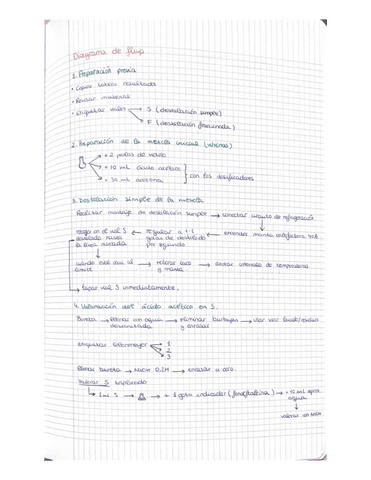 Diagrama de flujo
1. Preparación previa
• Copiar tablas resultados
• Revisar material
• Etiquetar viales → S (destilación simple)
→ F (destilación fraccionada)
2. Preparación de la mezcla inicial (vitrina)
→ + 2 perlas de vidrio
→ + 10 mL ácido acético
→ + 30 mL acetona
con los dosificadores
3. Destilación simple de la mezcla
Realizar montaje de destilación simple → conectar circuito de refrigeración
recoger en el vial S ← regular a 1-2 ← encender manta calefactora
destilado hasta gotas de destilado
la línea marcada por segundo
→ → anotar intervalo de temperatura
límite y manta
→ tapar vial S inmediatamente.
4. Valoración del ácido acético en S.
Bureta → llenar con agua → eliminar burbujas →
y enrasar
Etiquetar Erlenmeyer → 1
→ 2
→ 3
Llenar bureta → NaOH 0,1M → enrasar a cero.
Valorar S triplicado
→ 1 mL S → → + 1 gota indicador (fenolftaleína) → + 10 mL aprox
agua
valorar con NaOH